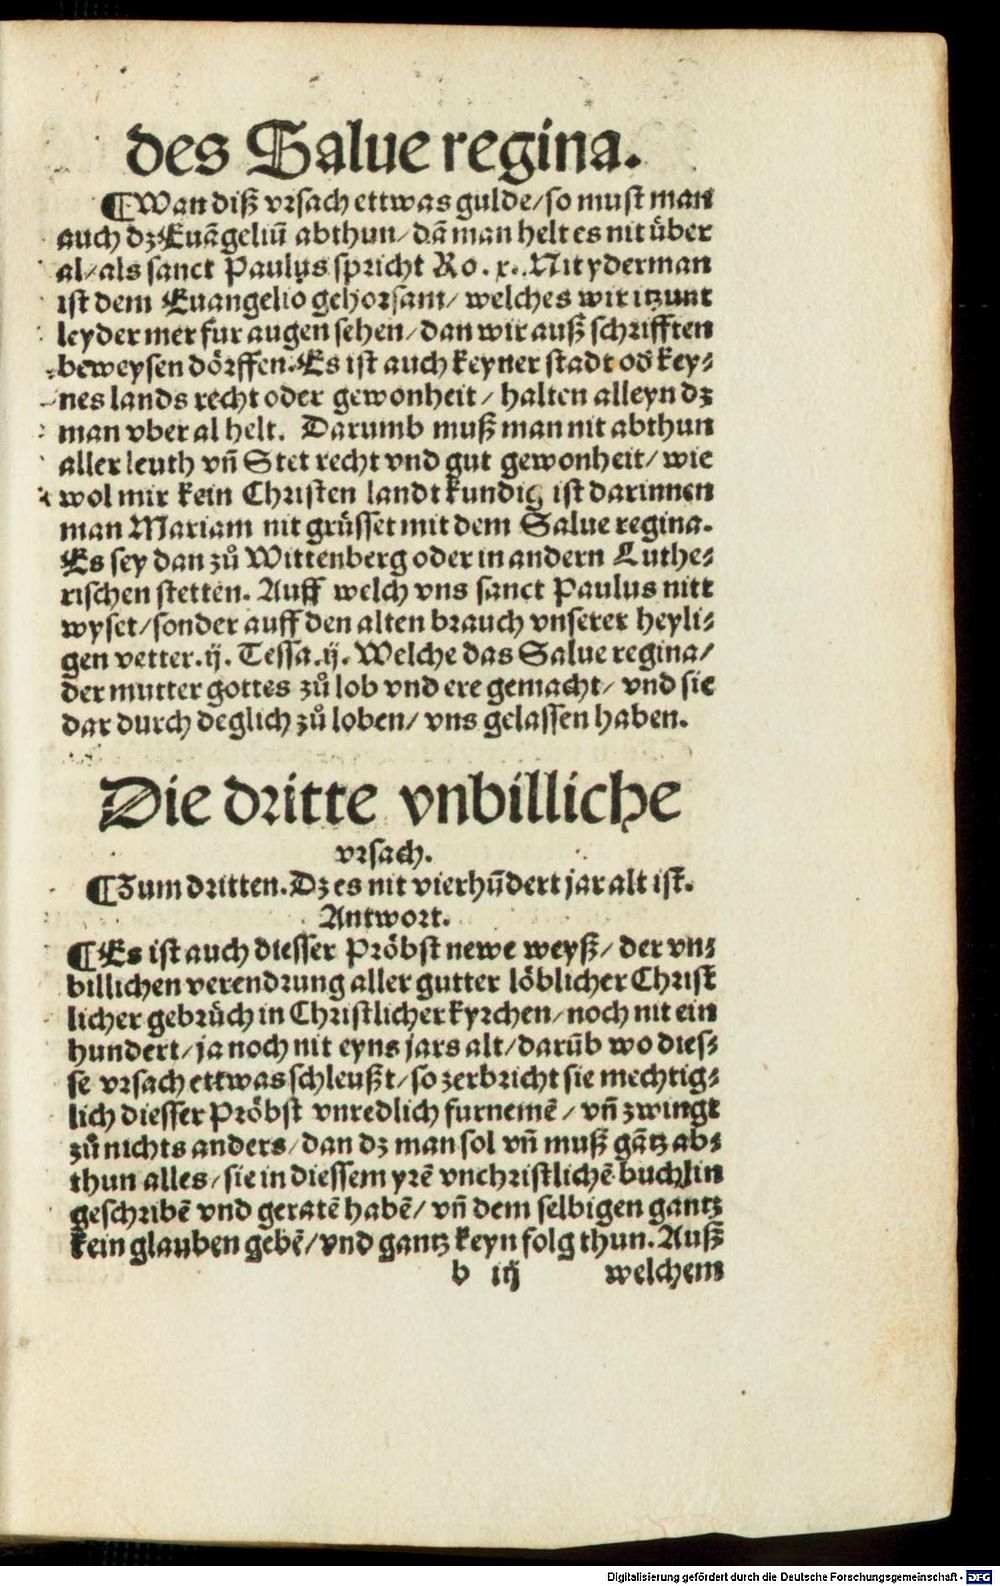 des Salue regina.
¶Wan diß vrsach ettwas gulde/so must man
auch dz Euãgeliũ abthun/dã man helt es nit über
al/als sanct Paulus spricht Ro.x. Nit yderman
ist dem Euangelio gehorsam/welches wir itzunt
leyder mer fur augen sehen/dan wir auß schrifften
beweysen dörffen. Es ist auch keyner stadt od̄ key⸗
nes lands recht oder gewonheit/halten alleyn dz
man vber al helt. Darumb muß man nit abthun
aller leuth vñ Stet recht vnd gut gewonheit/wie
wol mir kein Christen landt kundig ist darinnen
man Mariam nit grüsset mit dem Salue regina.
Es sey dan zů Wittenberg oder in andern Luthe⸗
rischen stetten. Auff welch vns sanct Paulus nitt
wyset/sonder auff den alten brauch vnserer heyli⸗
gen vetter.ij. Tessa.ij. Welche das Salue regina/
der mutter gottes zů lob vnd ere gemacht/vnd sie
dar durch deglich zů loben/vns gelassen haben.
Die dritte vnbilliche
vrsach.
¶Zum dritten. Dz es nit vierhũdert jar alt ist.
Antwort.
¶Es ist auch diesser Pröbst newe weyß/der vn⸗
billichen verendrung aller gutter löblicher Christ
licher gebrüch in Christlicher kyrchen/noch nit ein
hundert/ja noch nit eyns jars alt/darũb wo dies⸗
se vrsach ettwas schleußt/so zerbricht sie mechtig⸗
lich diesser Pröbst vnredlich furnemẽ/vñ zwingt
zů nichts anders/dan dz man sol vñ muß gãtz ab⸗
thun alles/sie in diessem yrẽ vnchristlichẽ buchlin
geschribẽ vnd geratẽ habẽ/vñ dem selbigen gantz
kein glauben gebẽ/vnd gantz keyn folg thun. Auß
b iij welchem
Digitalisierung gefördert durch die Deutsche Forschungsgemeinschaft - DFG